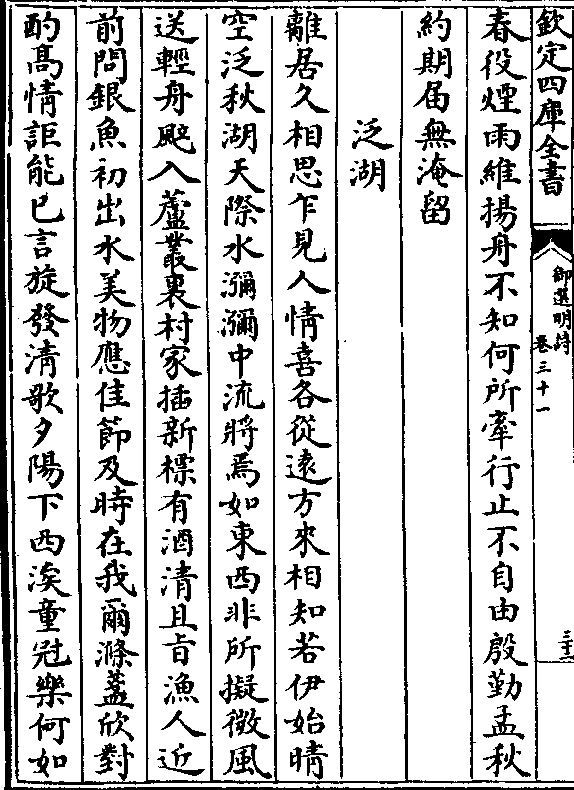 欽定四庫全書
御選明詩
卷三十一
三十二
春役煙雨維揚舟不知何所牽行止不自由殷勤孟秋
約期届無淹留
泛湖
離居久相思乍見人情喜各從遠方來相知若伊始晴
空泛秋湖天際水瀰瀰中流將焉如東西非所擬微風
送輕舟颭入蘆叢裏村家插新標有酒清且旨漁人近
前問銀魚初出水美物應佳節及時在我爾滌盞欣對
酌髙情詎能已言旋發清歌夕陽下西涘童冠樂何如